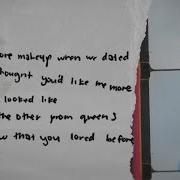 ore makeup when we dated
hought you'd like me more
looked like
he other prom queens
w that you loved before